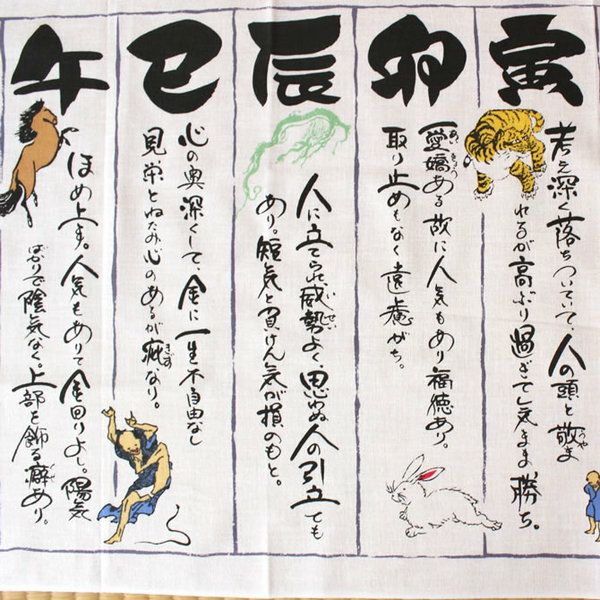 寅
考え深く落ちついていて、人の頭と敬ま
うや
れるが高ぶり過ぎて気まま勝ち。
卯
愛嬌ある故に人気もあり福徳あり。
あいきょう
取り止めもなく遠慮がち。
辰
人に立てられ威勢よく思わぬ人の引立ても
いせい
あり。短気と負けん気が損のもと。
巳
心の奥深くして、金に一生不自由なし
見栄とねたみ心のあるが疵なり。
きず
午
ほめ上手。人気もありて金回りよし。陽気
ばかりで陰気なく。上部を飾る癖あり。
くせ